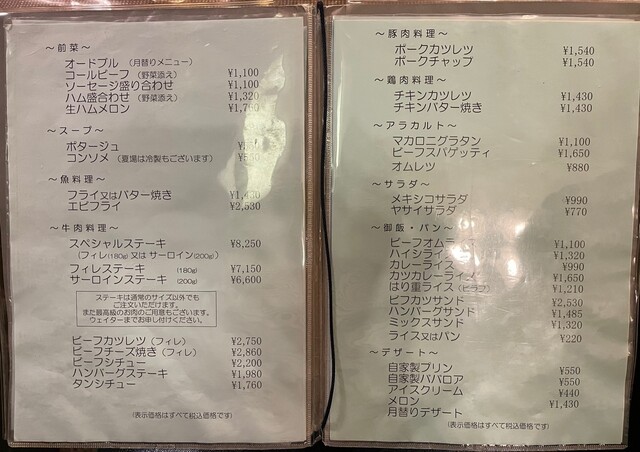 ～前菜～
オードブル (月替りメニュー)
コールビーフ (野菜添え) ¥1,100
ソーセージ盛り合わせ ¥1,100
ハム盛合わせ (野菜添え) ¥1,320
生ハムメロン
～スープ～
ポタージュ
コンソメ (夏場は冷製もございます)
～魚料理～
フライ又はバター焼き
エビフライ ¥2,530
～牛肉料理～
スペシャルステーキ ¥8,250
(フィレ(180g) 又は サーロイン(200g))
フィレステーキ (180g) ¥7,150
サーロインステーキ (200g) ¥6,600
ステーキは通常のサイズ以外でも
ご注文いただけます。
また最高級のお肉のご用意もございます。
ウェイターまでお申し付けください。
ビーフカツレツ (フィレ) ¥2,750
ビーフチーズ焼き (フィレ) ¥2,860
ビーフシチュー ¥2,200
ハンバーグステーキ ¥1,980
タンシチュー ¥1,760
(表示価格はすべて税込価格です)
～豚肉料理～
ポークカツレツ ¥1,540
ポークチャップ ¥1,540
～鶏肉料理～
チキンカツレツ ¥1,430
チキンバター焼き ¥1,430
～アラカルト～
マカロニグラタン ¥1,100
ビーフスパゲッティ ¥1,650
オムレツ ¥880
～サラダ～
メキシコサラダ ¥990
ヤサイサラダ ¥770
～御飯・パン～
ビーフオムライス ¥1,100
ハイシライス ¥1,320
カレーライス ¥990
カツカレーライス ¥1,650
はり重ライス (ピラフ) ¥1,210
ビフカツサンド ¥2,530
ハンバーグサンド ¥1,485
ミックスサンド ¥1,320
ライス又はパン ¥220
～デザート～
自家製プリン ¥550
自家製ババロア ¥550
アイスクリーム ¥440
メロン ¥1,430
月替りデザート
(表示価格はすべて税込価格です)